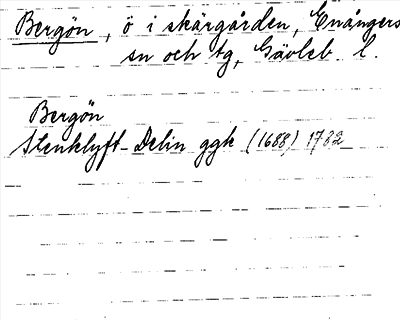 Bergön, ö i skärgården, Enångers
sn och tg, Gävleb. l.
Bergön
Stenklyft-Delin ggk (1688) 1782